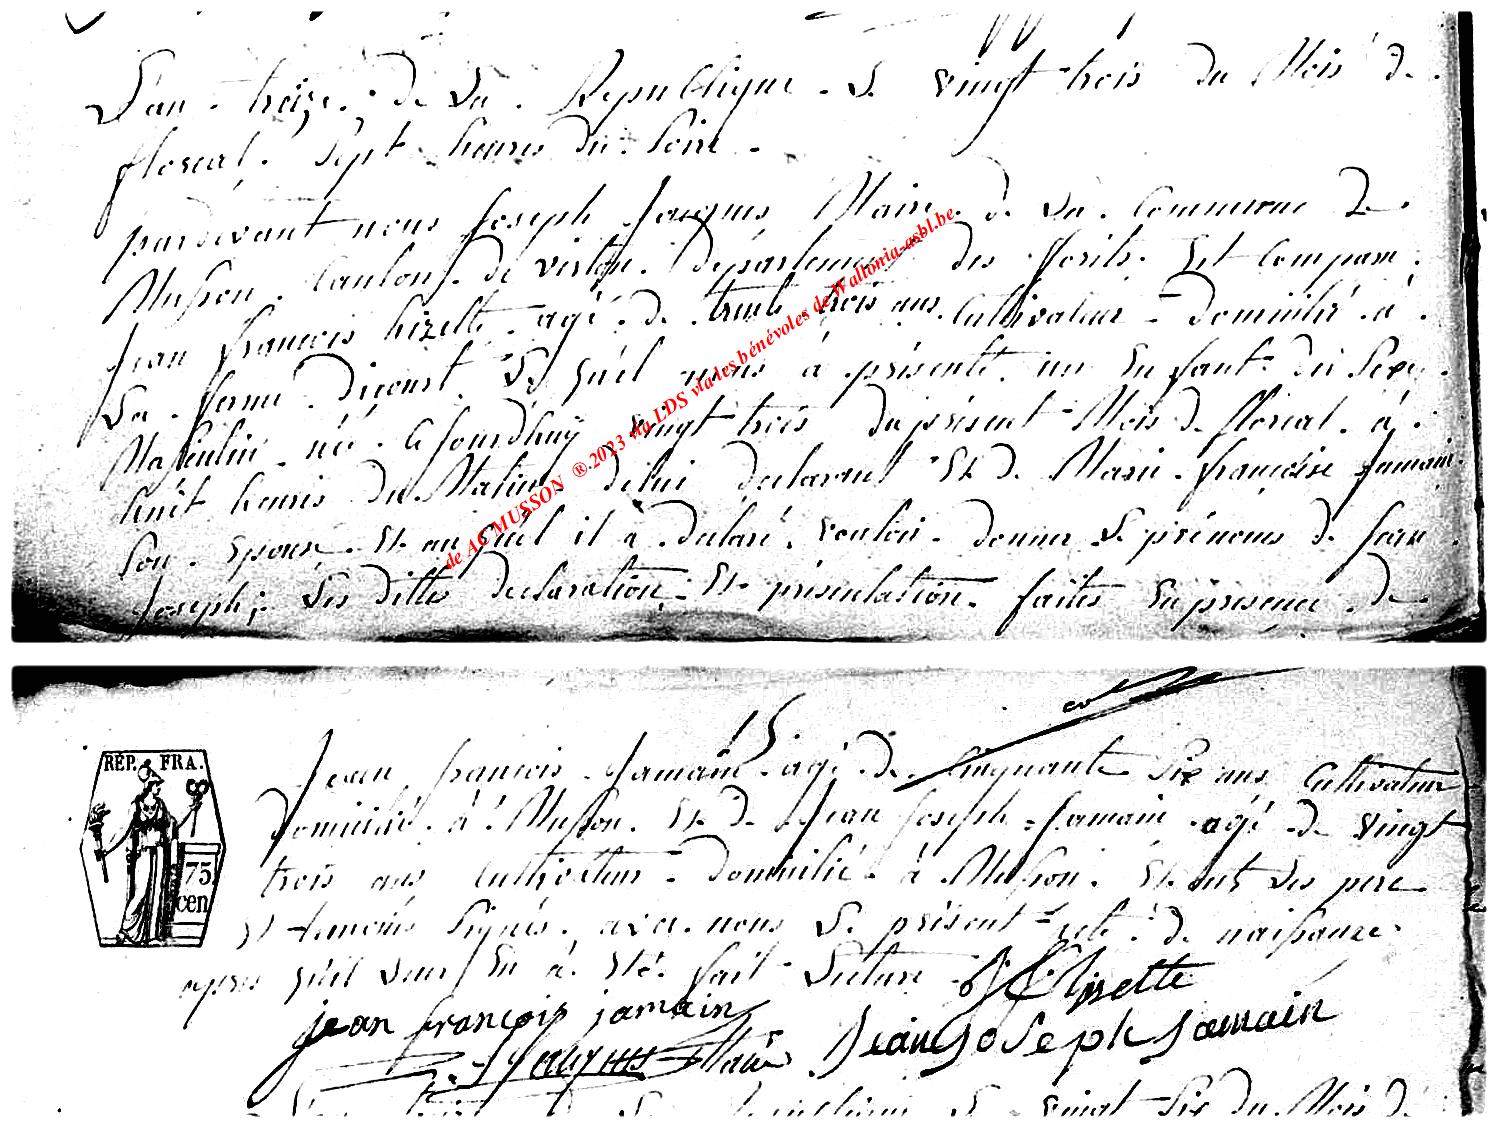 L'an treize de La Republique Le vingt trois du Mois de
floreal. Sept heures du Soire
pardevant nous Joseph Jacques Maire de La Commune De
Musson. Canton de virton. département des forêts. Est Comparu
Jean françois hizette agé de trente trois ans. Cultivateur Domicilié à
La ferme Le quel nous à présenté un Enfant du Sexe
Masculin né Cejourdhuÿ vingt trois duprésent Mois de floreal à
huit heures du Matin de lui declarant Et de Marie françoise Jamain
Son Epouse. Et au quel il a declaré vouloir donner Le prénoms de Jean
Joseph; Les dittes declaration Et présentation faites En présence de
de AC MUSSON ® 2023 via LDS via les bénévoles de Wallonia-asbl.be
15
Jean françois Jamain agé de Cinquante Six ans Cultivateur
Domicilié à Musson. Et de Jean Joseph Jamain agé de vingt
trois ans Cultivateur Domicilié à Musson. Et ont Les pere
Et temoins Signés avec nous Le présent acte de naissance
apres qu'il Leur En à Eté fait Lecture
REP. FRA.
75
cen
J. f. hizette
jean françois jamain
Jean Joseph Jamain
J. Jacques Maire
Le vingt Six du Mois de